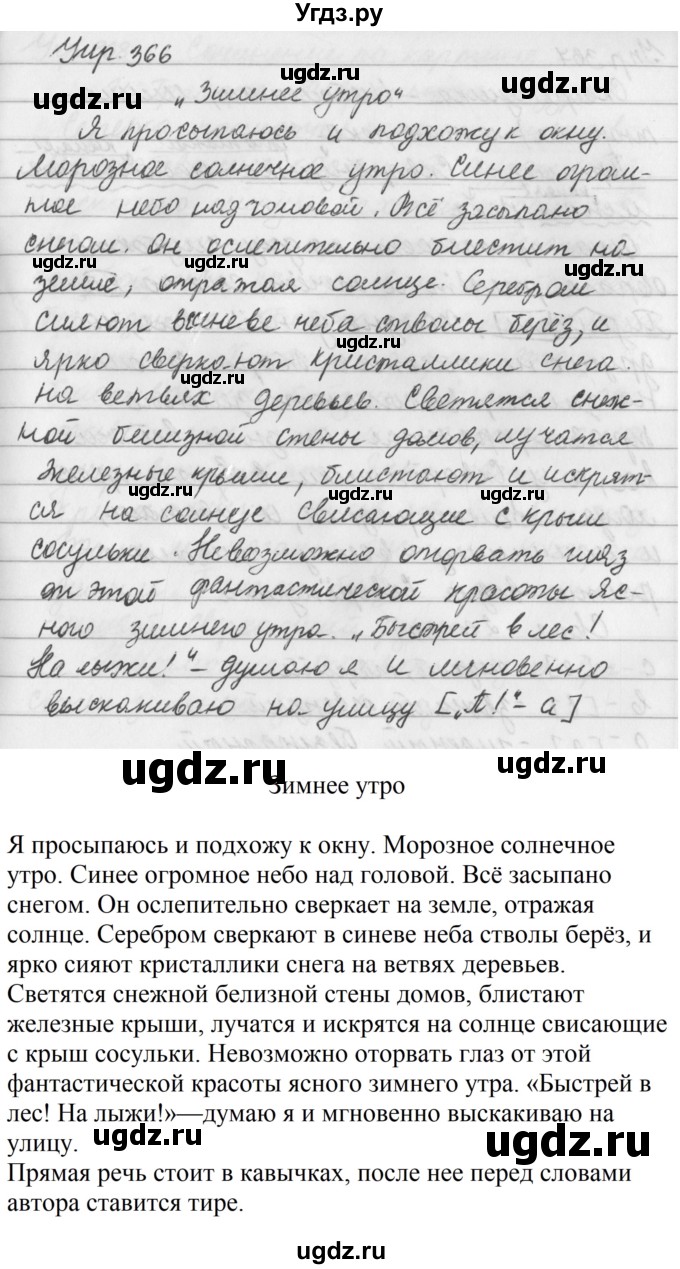 Угдз.ру
Упр. 366
„Зимнее утро“
Я просыпаюсь и подхожу к окну.
Морозное солнечное утро. Синее огром-
ное небо над головой. Всё засыпано
снегом. Он ослепительно блестит на
земле, отражая солнце. Серебром
сияют в синеве неба стволы берёз, и
ярко сверкают кристаллики снега
на ветвях деревьев. Светятся снеж-
ной белизной стены домов, лучатся
железные крыши, блистают и искрят-
ся на солнце свисающие с крыш
сосульки. Невозможно оторвать глаз
от этой фантастической красоты яс-
ного зимнего утра. „Быстрей в лес!
На лыжи!“ – думаю я и мгновенно
выскакиваю на улицу [„П!“ – а]
ugdz.ru ugdz.ru
Зимнее утро
Я просыпаюсь и подхожу к окну. Морозное солнечное
утро. Синее огромное небо над головой. Всё засыпано
снегом. Он ослепительно сверкает на земле, отражая
солнце. Серебром сверкают в синеве неба стволы берёз, и
ярко сияют кристаллики снега на ветвях деревьев.
Светятся снежной белизной стены домов, блистают
железные крыши, лучатся и искрятся на солнце свисающие
с крыш сосульки. Невозможно оторвать глаз от этой
фантастической красоты ясного зимнего утра. «Быстрей в
лес! На лыжи!»—думаю я и мгновенно выскакиваю на
улицу.
Прямая речь стоит в кавычках, после нее перед словами
автора ставится тире.
ugdz.ru